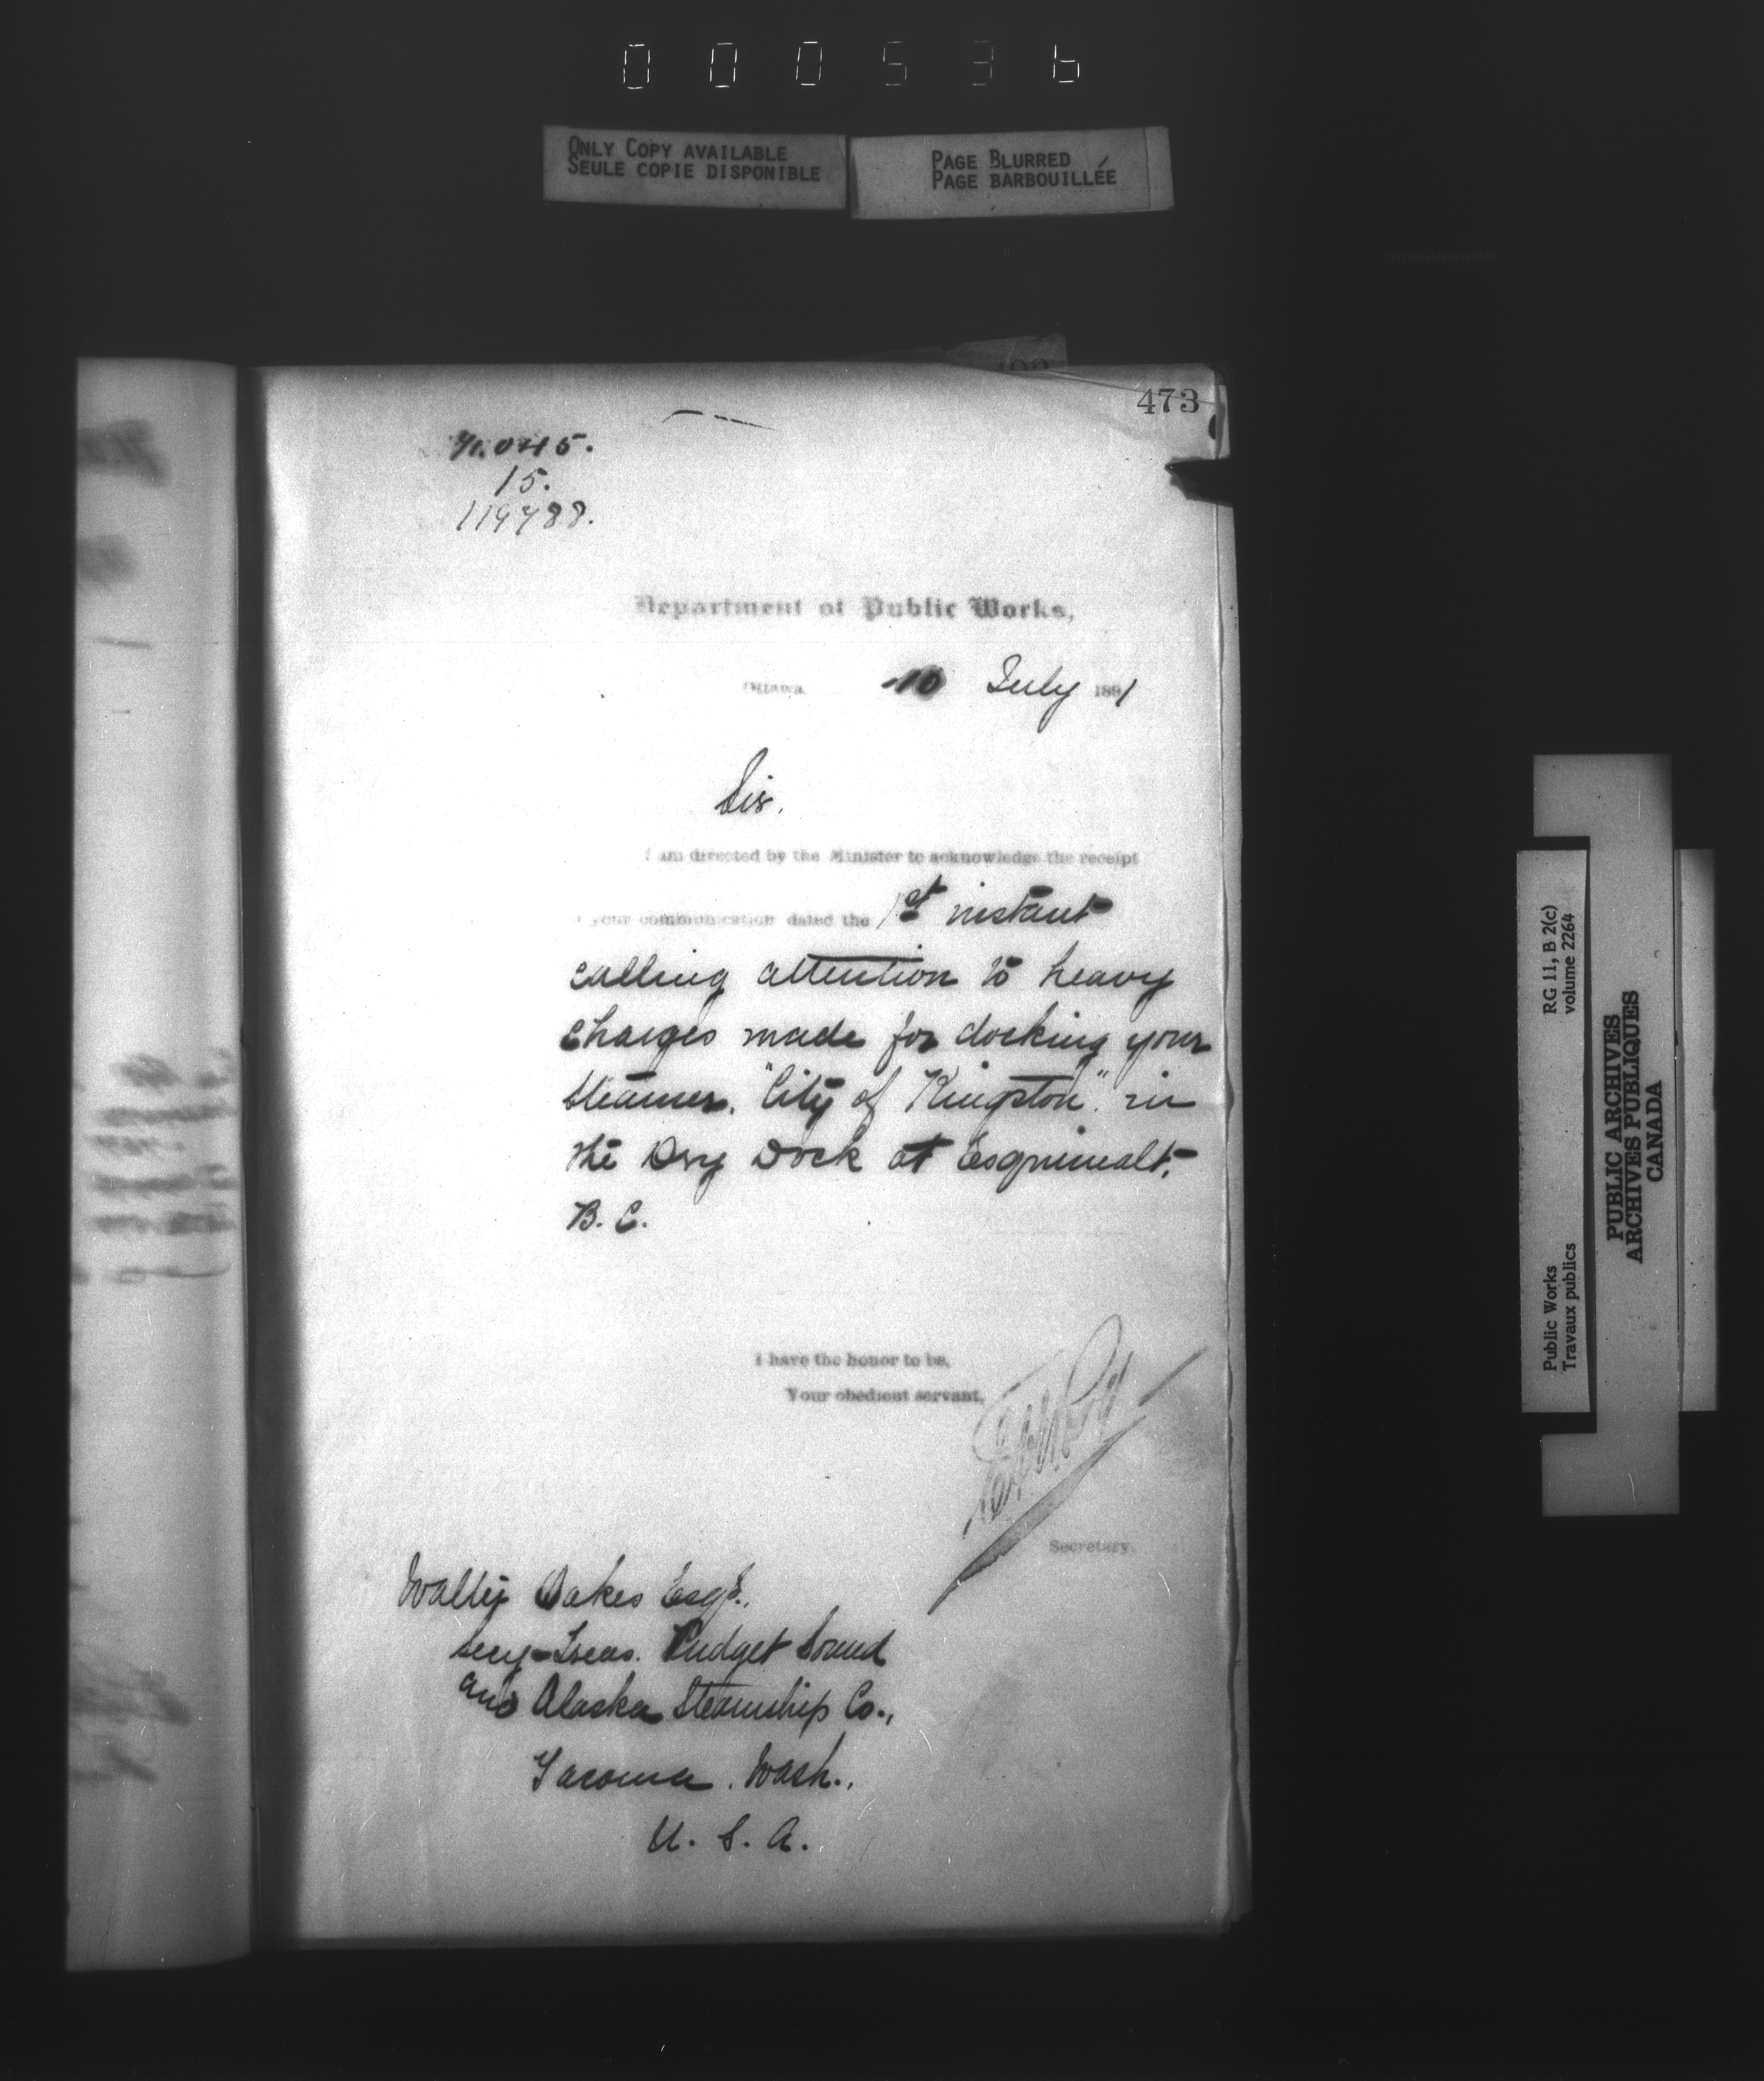 000536
ONLY COPY AVAILABLE
SEULE COPIE DISPONIBLE
PAGE BLURRED
PAGE BARBOUILLÉE
473
15.
119788.
Department of Public Works,
Ottawa 10 July 1891
Sir.
I am directed by the Minister to acknowledge the receipt
of your communication dated the 1st instant
calling attention to heavy
charges made for docking your
steamer. "City of Kingston". in
the Dry Dock at Esquimalt,
B. C.
I have the honor to be,
Your obedient servant,
Secretary.
Walter Oakes Esqr.,
Secy-Treas. Pudget Sound
and Alaska Steamship Co.,
Tacoma. Wash.,
U. S. A.
Public Works
Travaux publics
RG 11, B 2(c)
volume 2264
PUBLIC ARCHIVES
ARCHIVES PUBLIQUES
CANADA